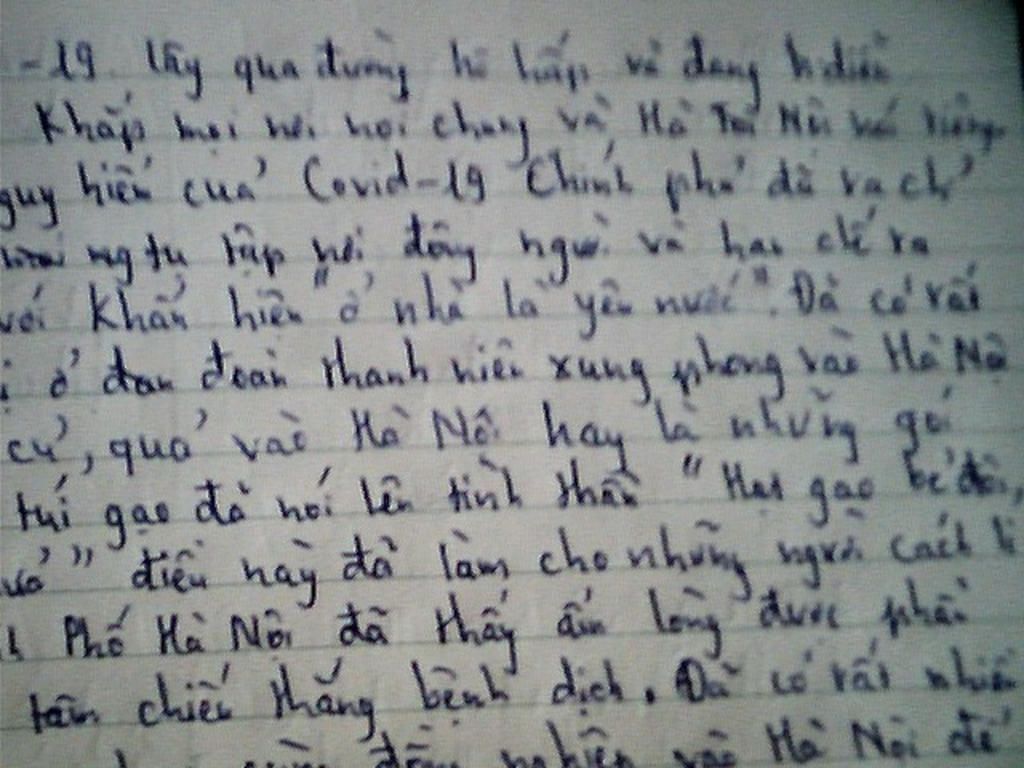 -19 lây qua đường hô hấp và đang
Khắp mọi nơi nói chung và Hà Nội nói riêng
guy hiểm của Covid-19 Chính phủ đã ra ch
tụ tập nơi đông người và hạn chế ra
với khẩu hiệu "ở nhà là yêu nước". Đã có rất
ở đan đoàn thanh niên xung phong vào Hà Nội
củ, quả vào Hà Nội hay là những gói
túi gạo đã nói lên tinh thần "Hạt gạo bẻ đôi,
" điều này đã làm cho những người cách li
Phố Hà Nội đã thấy ấm lòng được phần
tâm chiến thắng bệnh dịch. Đã có rất nhiều
nghiện vào Hà Nội để